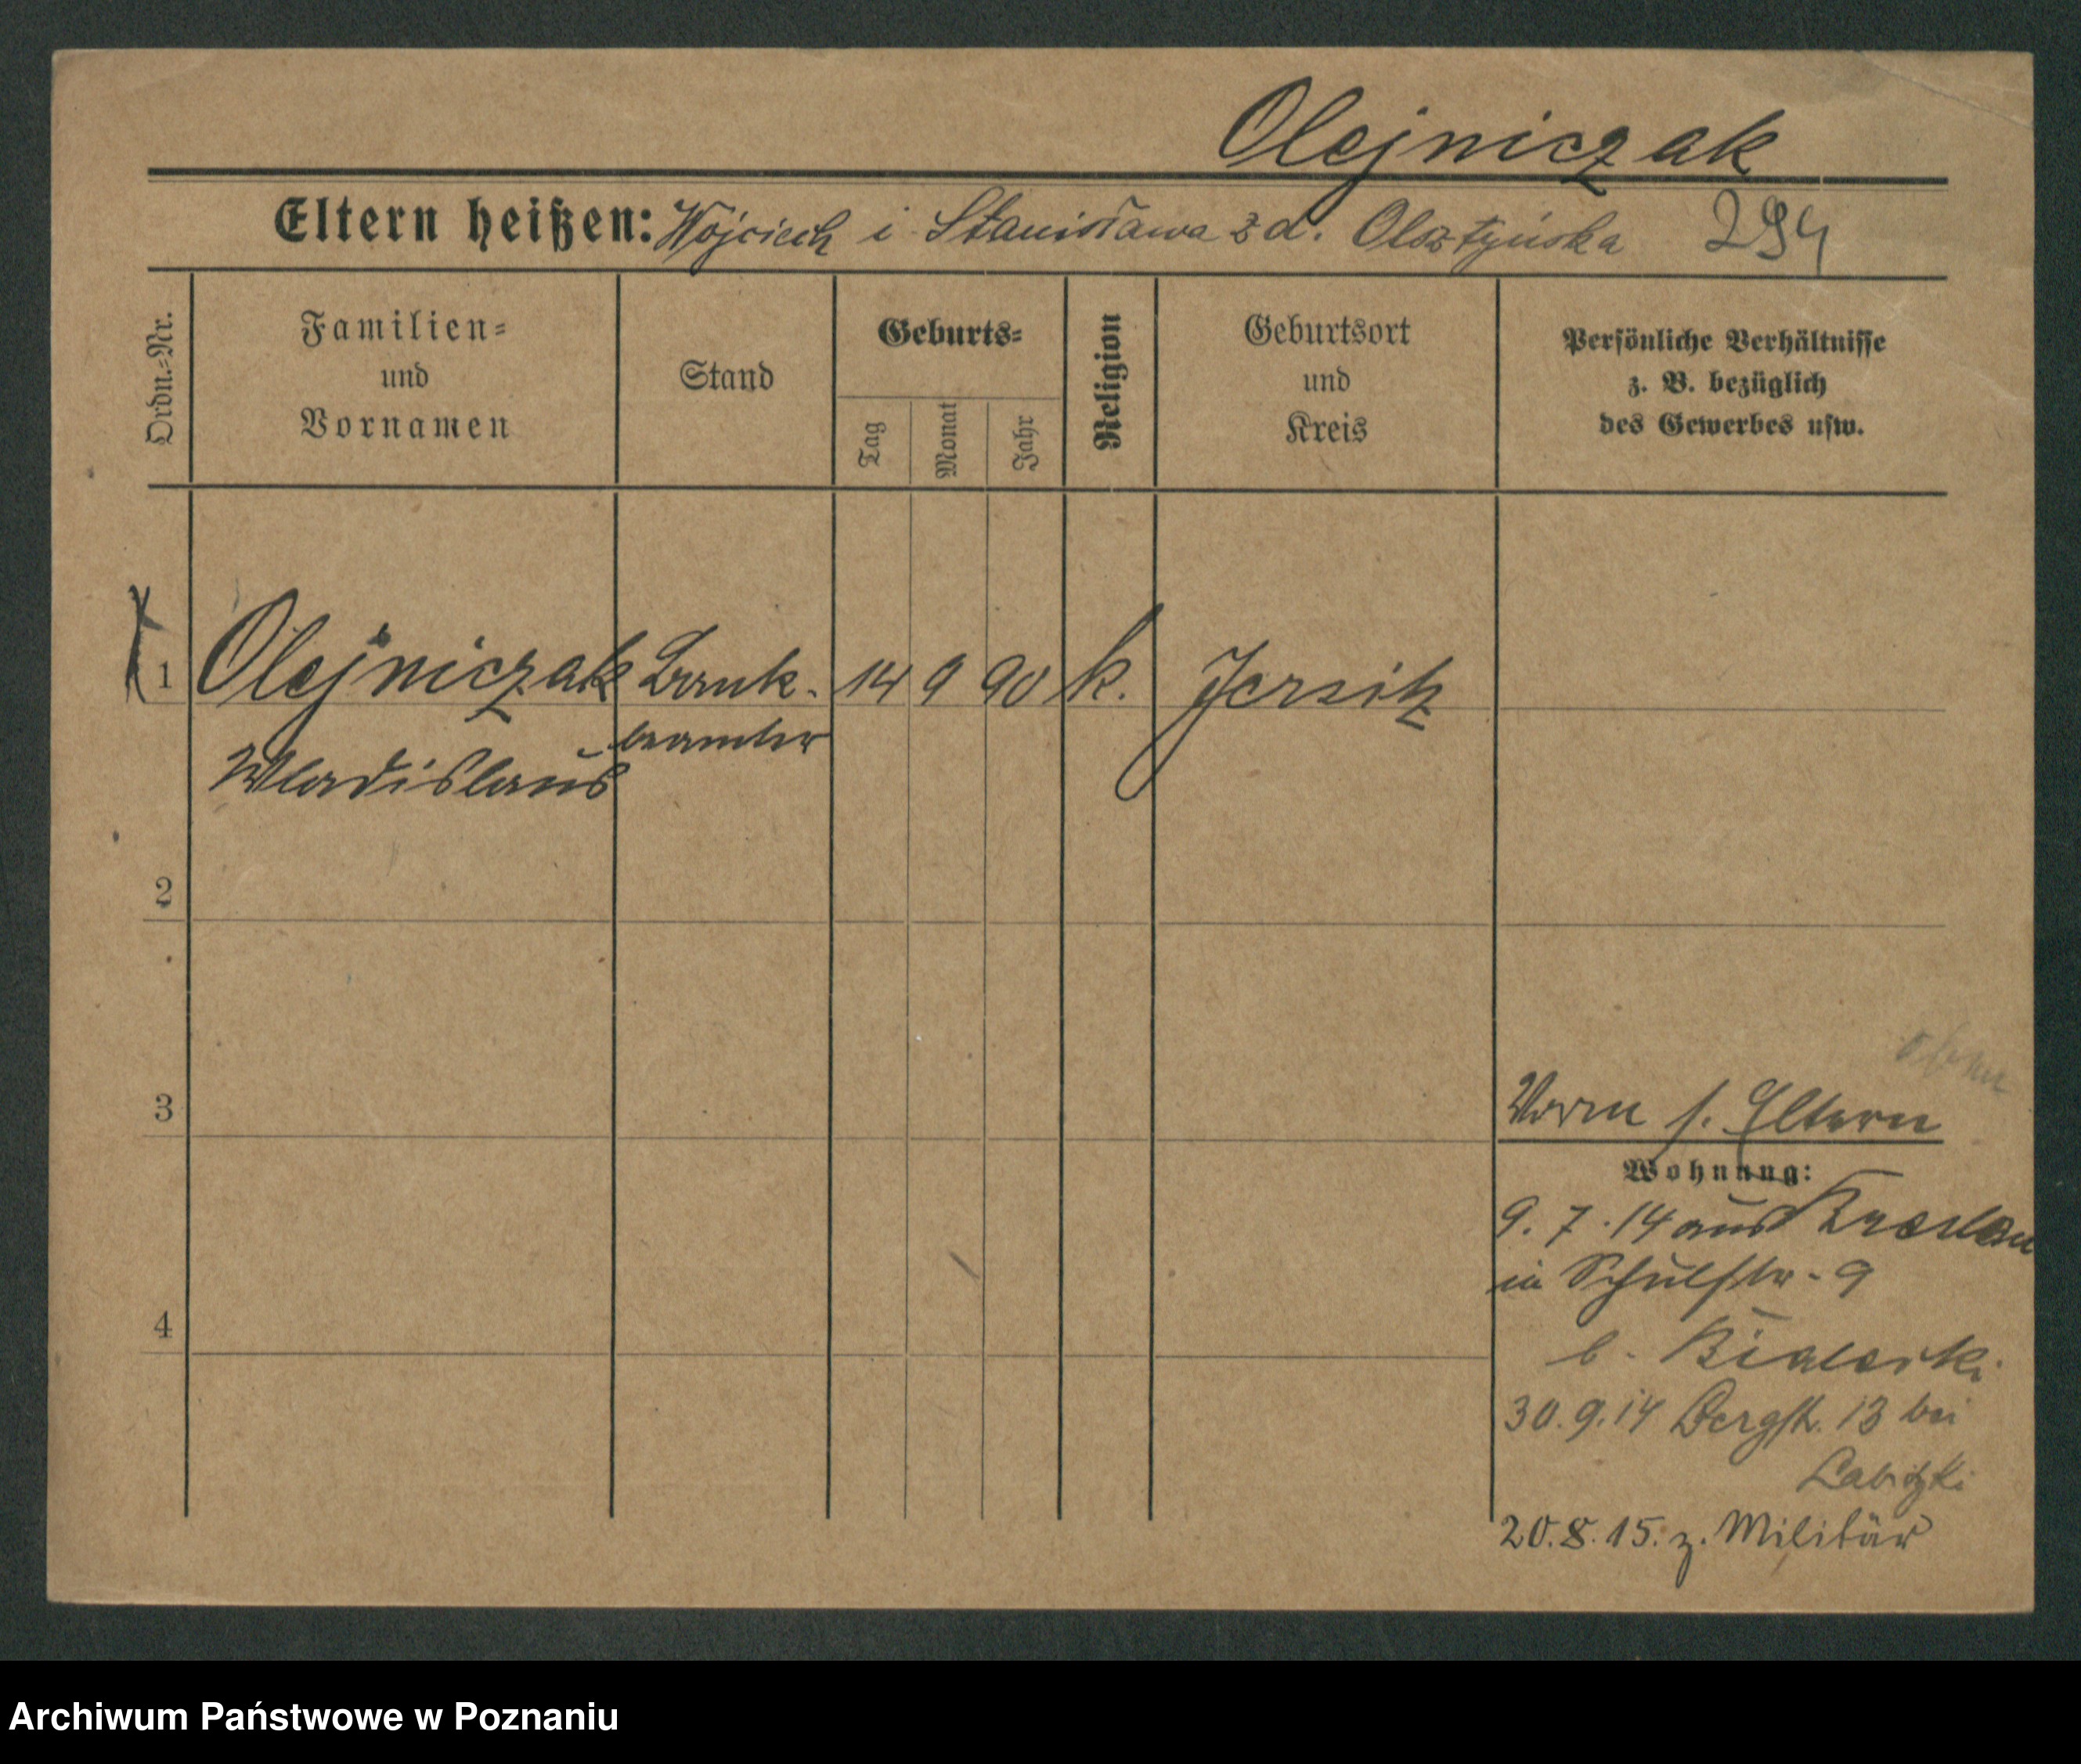 Olejniczak
Eltern heißen: Wojciech i Stanisława z d. Olsztyńska 294
Ordn.-Nr.
Familien-
und
Vornamen
Stand
Geburts-
Tag
Monat
Jahr
Religion
Geburtsort
und
Kreis
Persönliche Verhältnisse
z. B. bezüglich
des Gewerbes usw.
1 Olejniczak Bank- 14 9 90 k. Jersitz
beamter
Wladislaus
2
3
s. Eltern
Wohnung:
9. 7. 14 aus Breslau
in Schulstr. 9
b. Bialecki
4
30.9.14 Bergstr. 13 bei
Labitzki
20.8.15. z. Militär
Archiwum Państwowe w Poznaniu